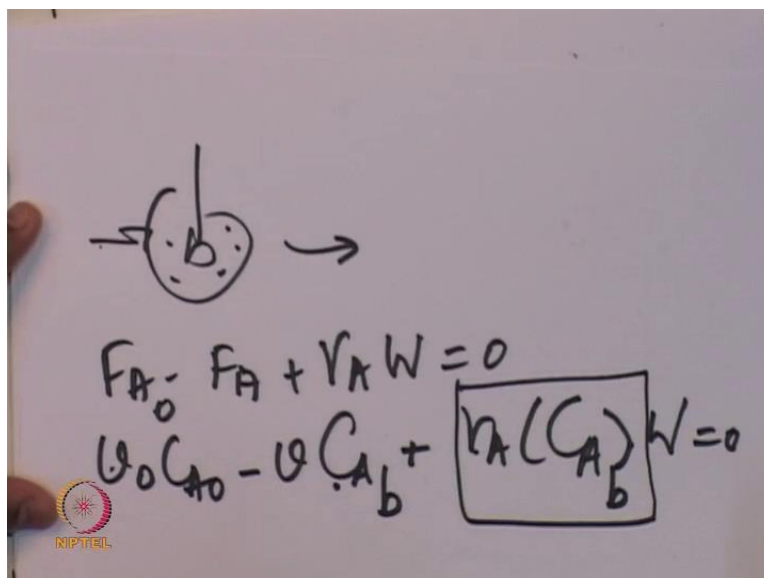 F_{A_0} - F_A + r_A W = 0
υ_0 C_{A0} - υ C_{A_b} + r_A (C_A)_b W = 0
NPTEL